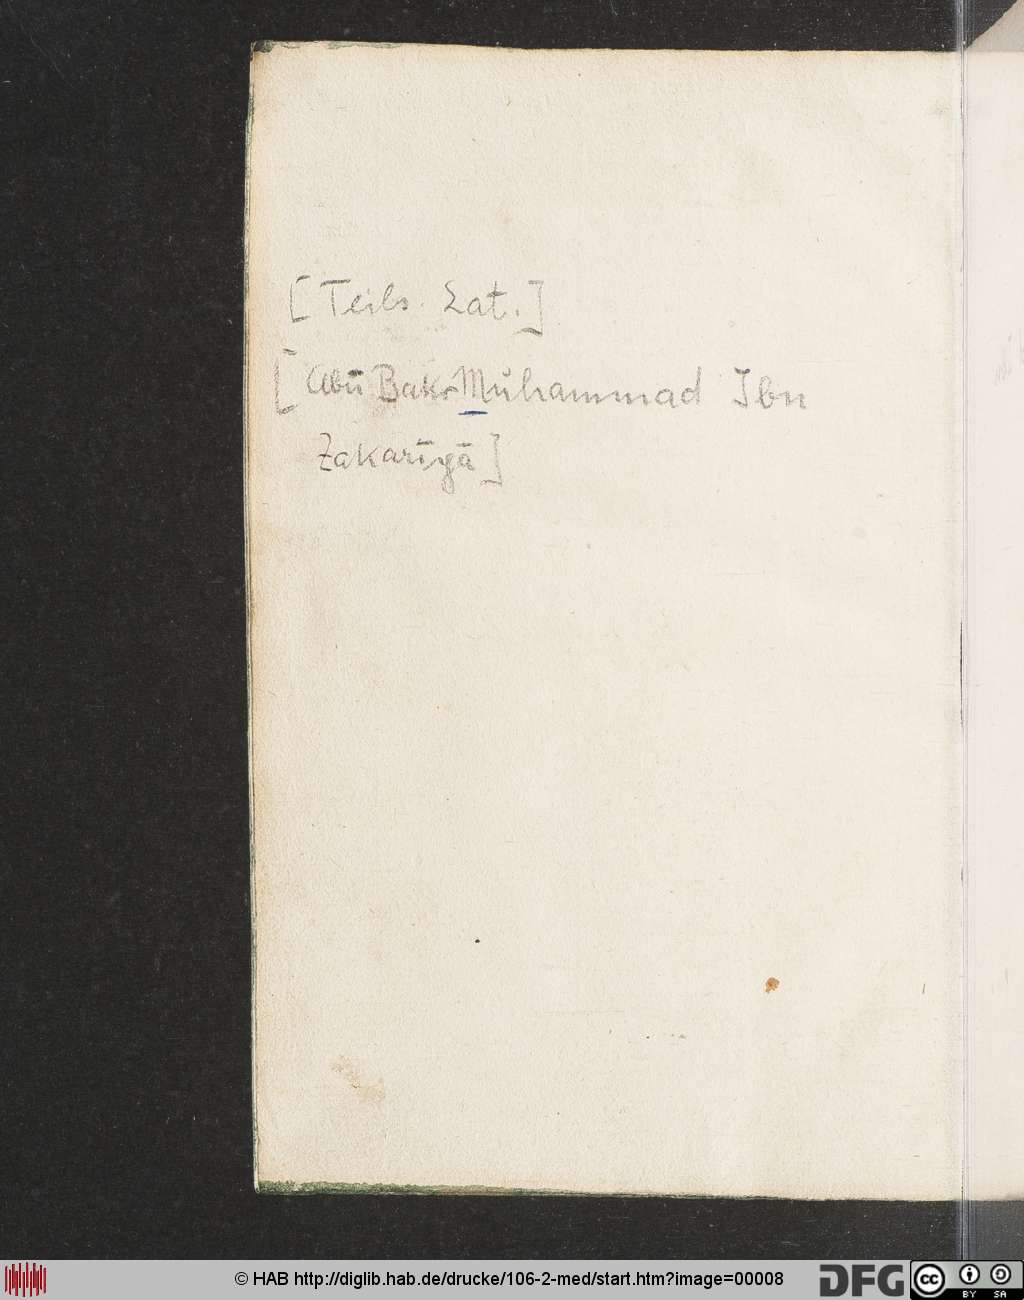 [Teils. Lat.]
[Abū Bakr Muhammad Ibn
Zakarīyā]
© HAB http://diglib.hab.de/drucke/106-2-med/start.htm?image=00008
DFG
cc
BY SA